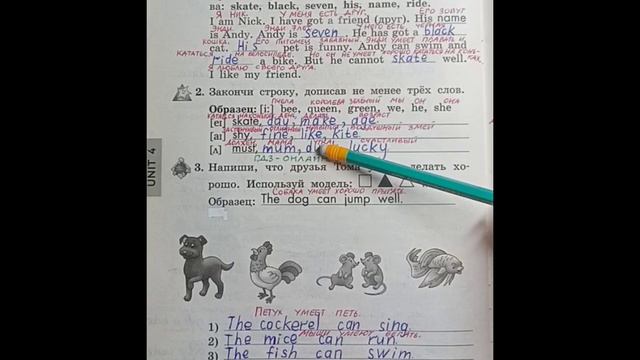 ва: skate, black, seven, his, name, ride.
Я НИК. У МЕНЯ ЕСТЬ ДРУГ. ЕГО ЗОВУТ
I am Nick. I have got a friend (друг). His name
ЭНДИ ЭНДИ У НЕГО ЕСТЬ ЧЕРНАЯ
is Andy. Andy is seven. He has got a black
КОШКА. ЕГО ПИТОМЕЦ ЗАБАВНЫЙ. ЭНДИ УМЕЕТ ПЛАВАТЬ И
cat. His pet is funny. Andy can swim and
КАТАТЬСЯ НА ВЕЛОСИПЕДЕ. НО ОН НЕ УМЕЕТ ХОРОШО КАТАТЬСЯ НА КОНЬ-
ride a bike. But he cannot skate well. КАХ
Я ЛЮБЛЮ СВОЕГО ДРУГА.
I like my friend.
2. Закончи строку, дописав не менее трёх слов.
ПЧЕЛА КОРОЛЕВА ЗЕЛЕНЫЙ МЫ ОН ОНА
Образец: [i:] bee, queen, green, we, he, she
КАТАТЬСЯ НА КОНЬКАХ ДЕНЬ ДЕЛАТЬ ВОЗРАСТ
[eı] skate, day, make, age
ЗАСТЕНЧИВЫЙ ВОЗДУШНЫЙ ЗМЕЙ
[aı] shy, fine, like, kite
ДОЛЖЕН МАМА СЧАСТЛИВЫЙ
[ʌ] must, mum, lucky
ГДЗ-ОНЛАЙН
3. Напиши, что друзья Тома делать хо-
рошо. Используй модель:
СОБАКА УМЕЕТ ХОРОШО ПРЫГАТЬ.
Образец: The dog can jump well.
UNIT 4
ПЕТУХ УМЕЕТ ПЕТЬ.
1) The cockerel can sing
МЫШИ УМЕЮТ БЕГАТЬ.
2) The mice can run
3) The fish can swim